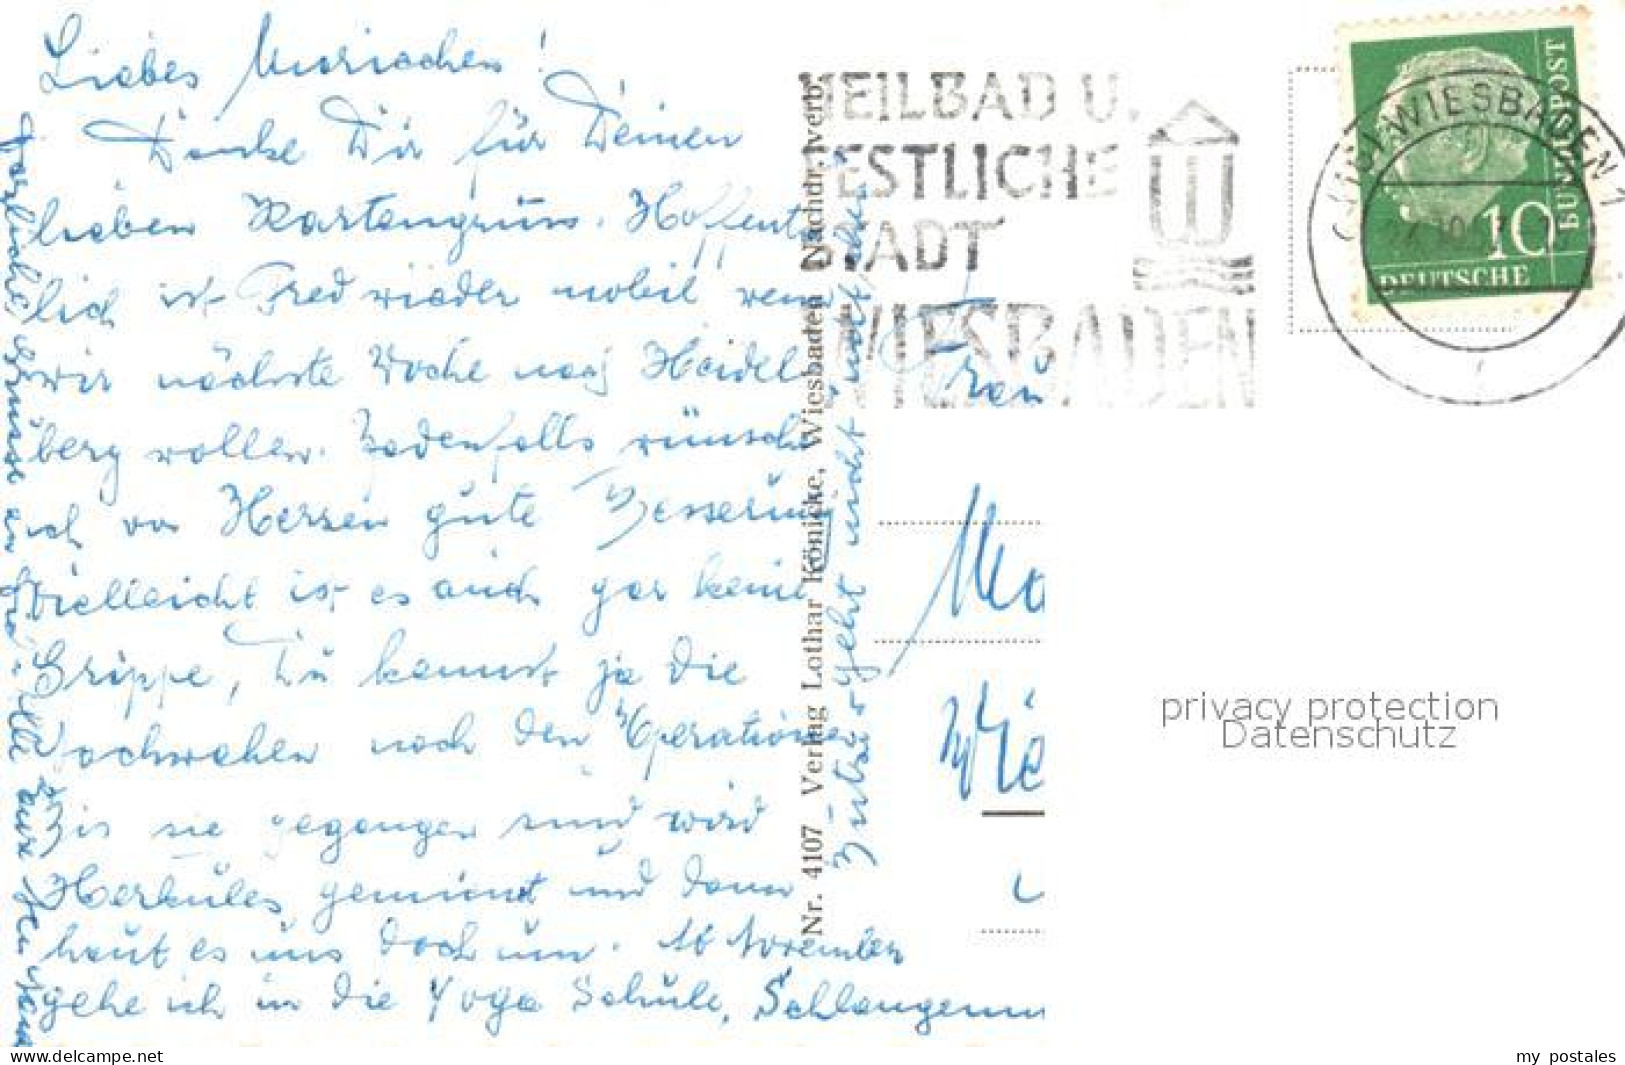 Liebes Mariachen!
Danke Dir für Deinen
lieben Kartengruss. Hoffent-
lich ist Fred wieder mobil wenn
wir nächste Woche nach Heidel-
berg wollen. Jedenfalls wünsche
ich von Herzen gute Besserung
Vielleicht ist es auch gar keine
Grippe, Du kennst ja die
Nachwehen nach den Operationen
Bis sie gegangen sind wird
Herkules gemimt und dann
haut es uns doch um. Ab November
gehe ich in die Yoga Schule, Schlangenm
Herzliche Grüsse
geht nicht
Nr. 4107 Verlag Lothar Könicke, Wiesbaden Nachdr. verb.
HEILBAD U.
FESTLICHE
STADT
WIESBADEN
WIESBADEN 1
DEUTSCHE
BUNDESPOST
10
Frau
Ma
Wie
privacy protection
Datenschutz
www.delcampe.net
my_postales